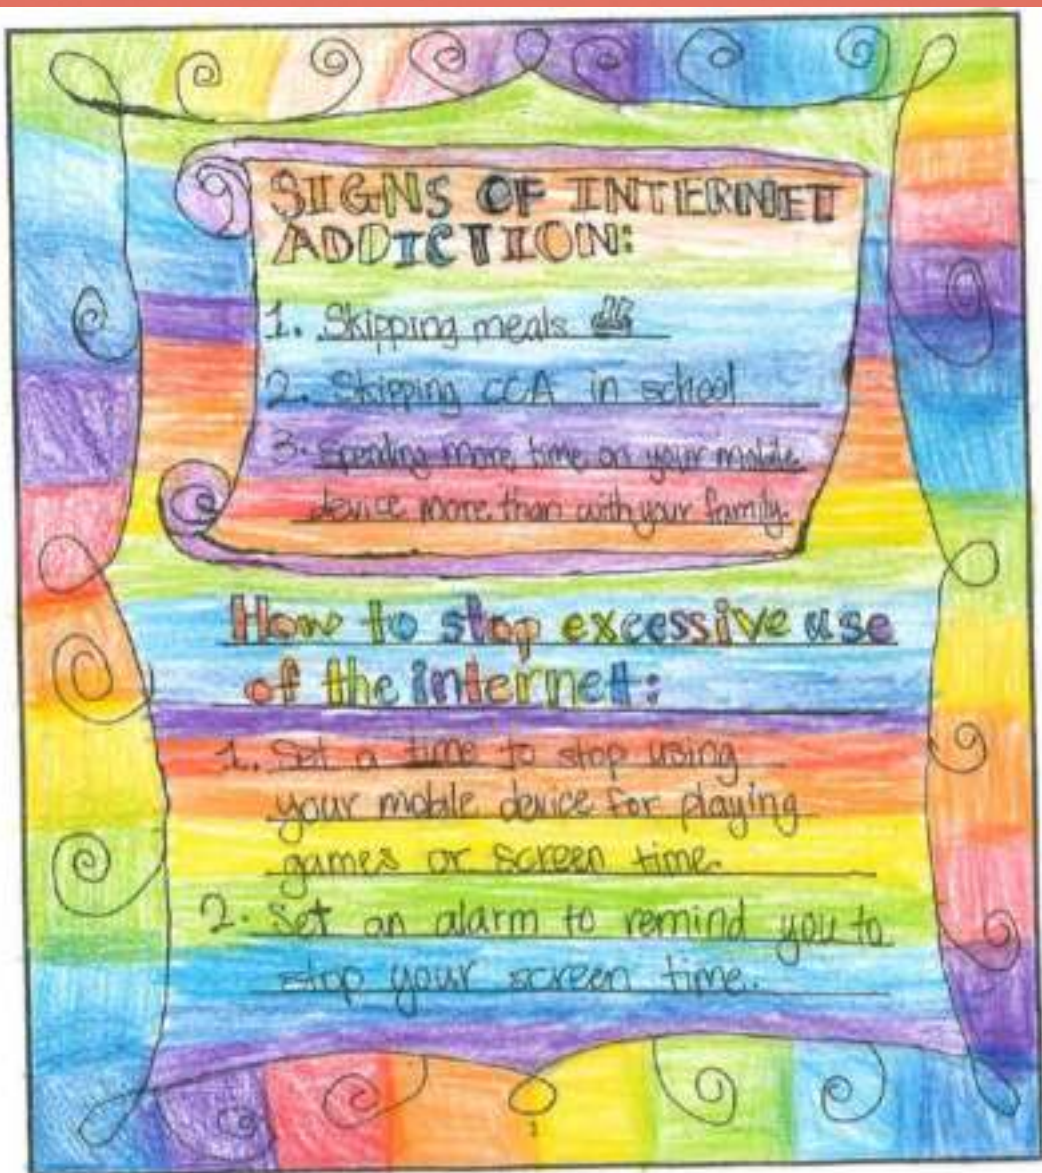 SIGNS OF INTERNET
ADDICTION:
1. Skipping meals
2. Skipping CCA in school
3. Spending more time on your mobile
device more than with your family.
How to stop excessive use
of the internet:
1. Set a time to stop using
your mobile device for playing
games or screen time.
2. Set an alarm to remind you to
stop your screen time.
1